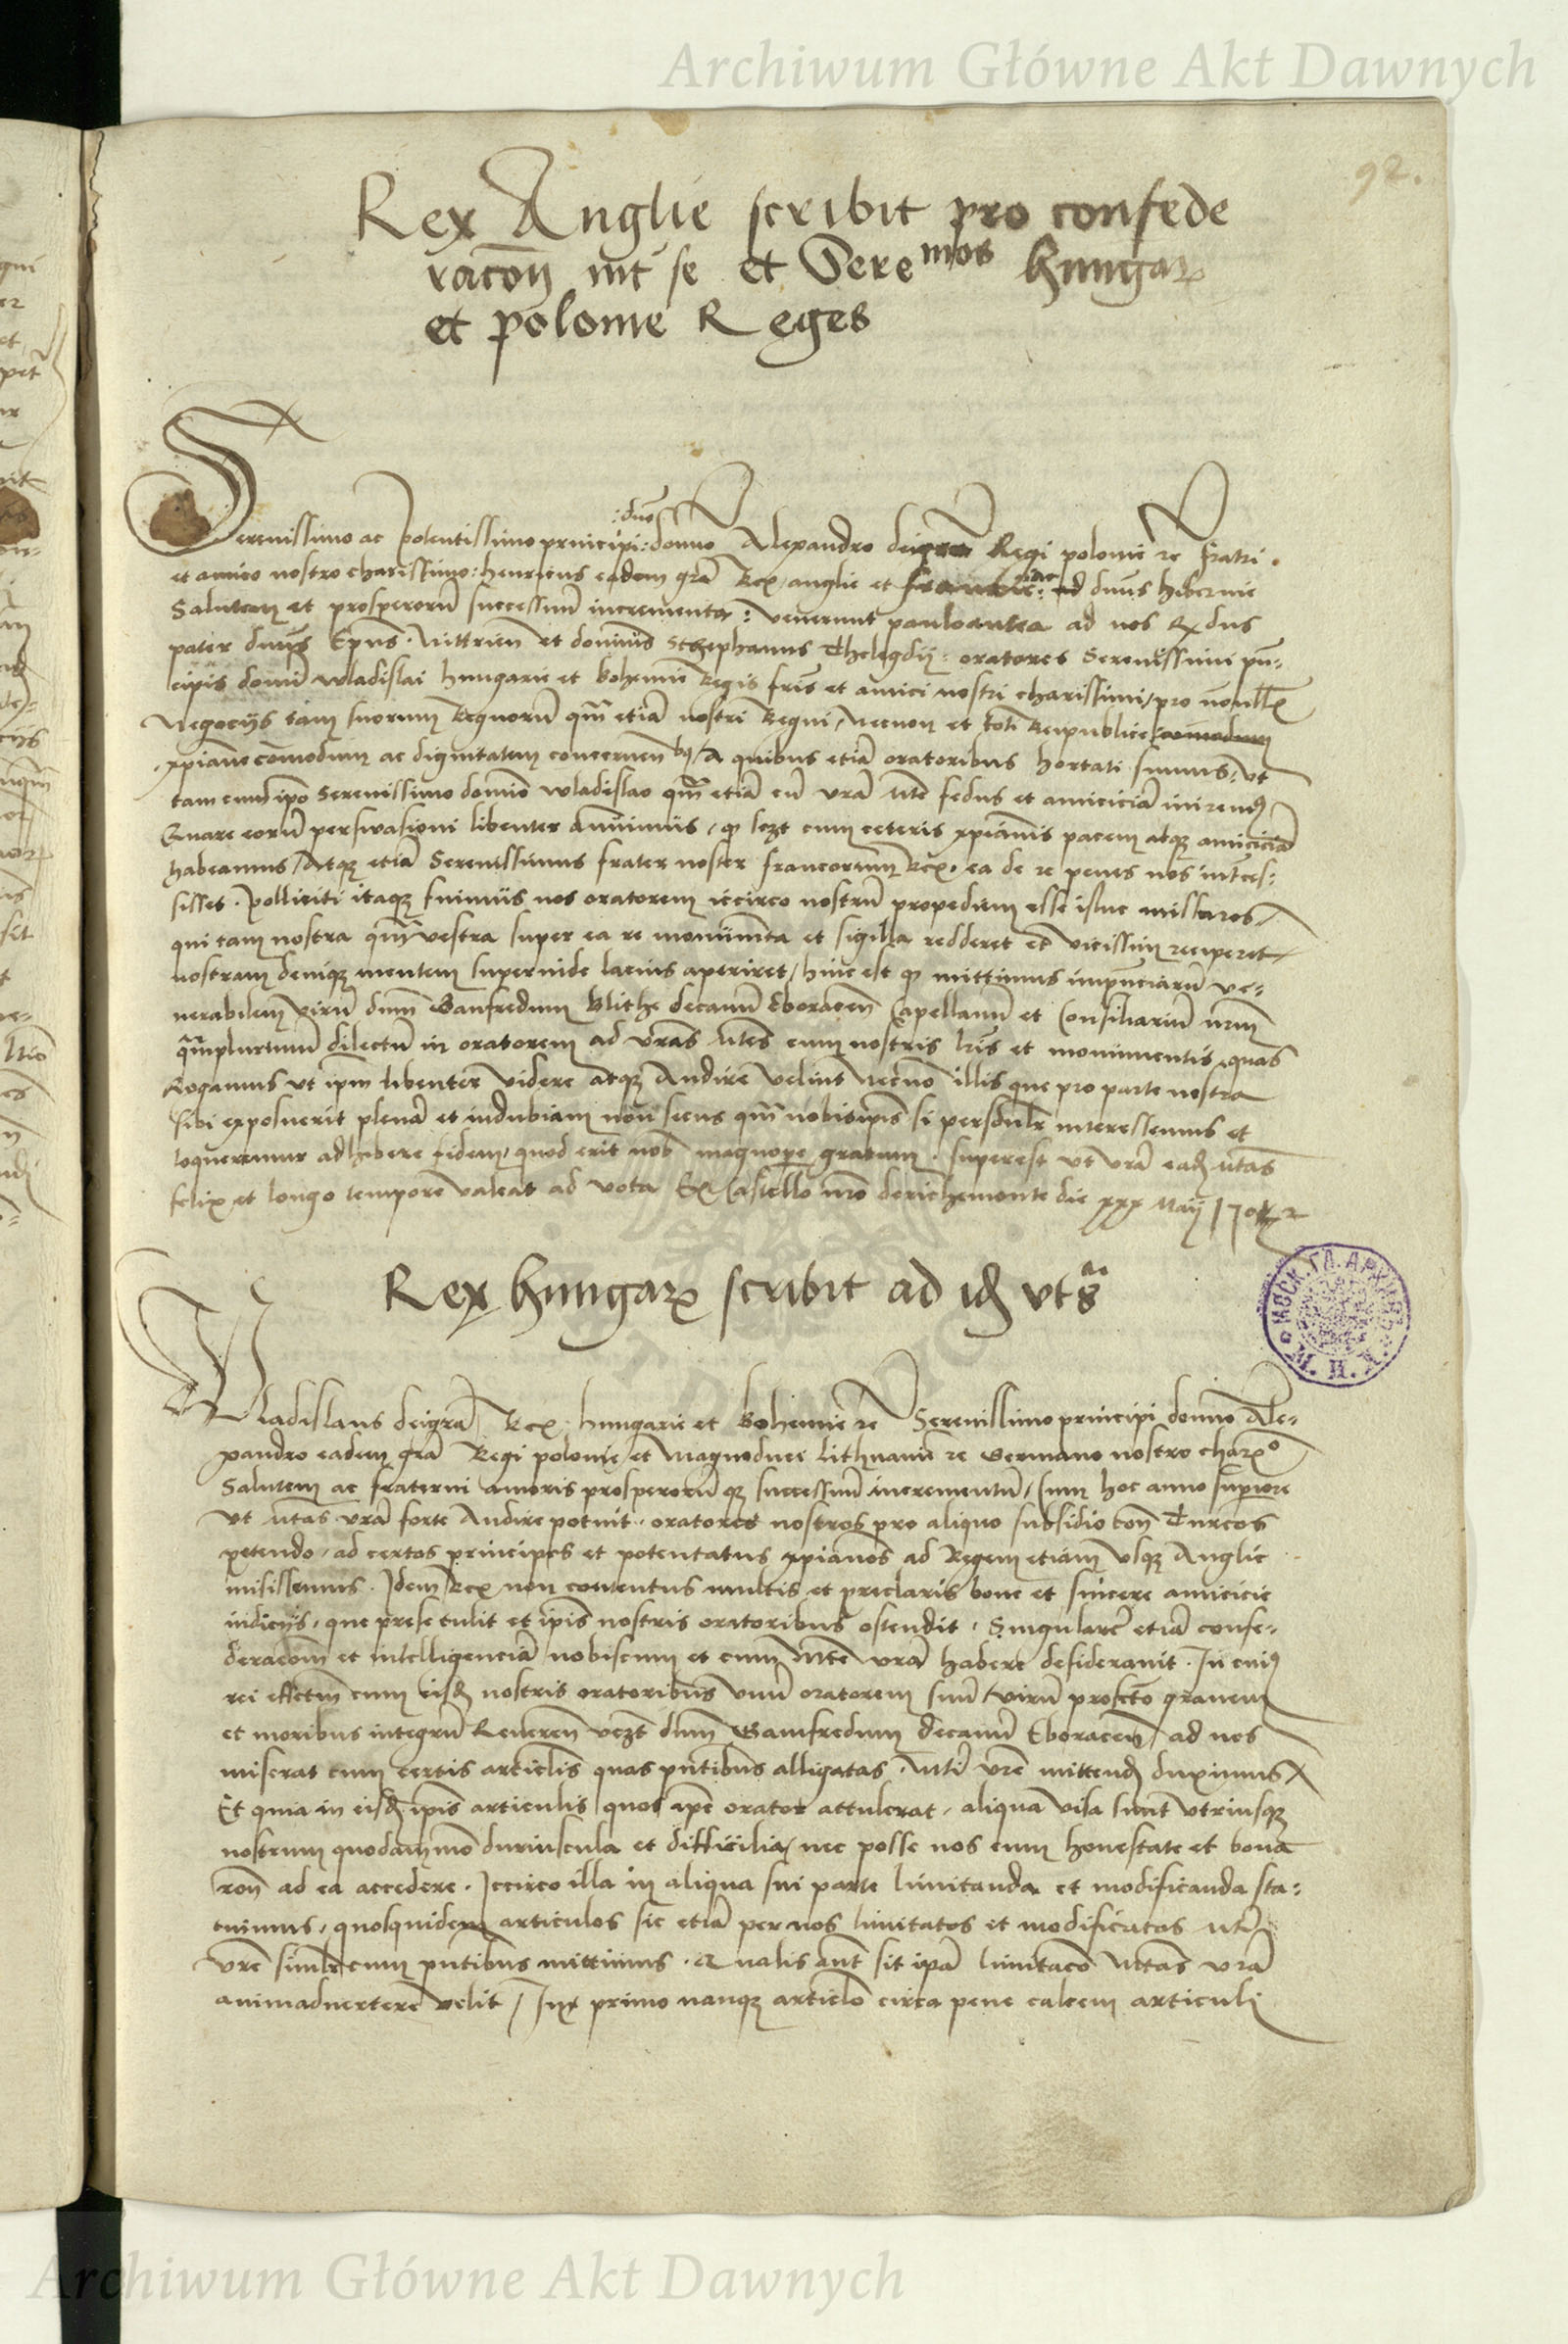 Archiwum Główne Akt Dawnych
92.
Rex Anglie scribit pro confede
racoñ int se et Seremos hungar
et polonie Reges
duo
Serenissimo ac potentissimo principi: domno Alexandro dei gra Regi polonie rc fratri
et amico nostro charissimo: henricus eadem gra Rex anglie et francie: ac dnus hibernie
Salutem et prosperorũ successuũ incrementa: venerunt pauloantea ad nos Rdus
pater dnus Epus Nittrien et dominus Stephanus Thelegdij: oratores Serenissimi prin-
cipis domi wladislai hungarie et bohemie Regis fris et amici nostri charissimi, pro nonull
Negocijs tam suorum Regnorũ qm etiã nostri Regni, necnon et toti Reipublice
xpiane comodum ac dignitatem concernen bq, A quibus etiã oratoribus hortati sumus, ut
tam cum ipo Serenissimo domio wladislao qm etiã cũ vrã Mte fedus et amiciciã iniremq
Quare eorũ persuasioni libenter annuimus, qp licet cum ceteris xpianis pacem atqz amiciciã
habeamus, Atqz etiã Serenissimus frater noster francorum Rex, ea de re penes nos interces-
sisset. Polliciti itaqz fuimus nos oratorem iccirco nostrũ propediem esse istuc missuros,
qui tam nostra qm vestra super ea re monumta et sigilla redderet et vicissim reciperet,
nostram deniqz mentem superinde lacius aperiret, hinc est qp mittimus impnciarũ ve-
nerabilem virũ dnm Ganfredum Blithe decanũ Eboracen Capellanũ et Consiliariũ nrm
qmplurimũ dilectũ in oratorem ad vras Mtes cum nostris lris et monimentis, quas
Rogamus vt ipm libenter videre atqz Audire velint Necno illis que pro parte nostra
sibi exposuerit plenã et indubiam non secus qm nobisipis si personlr interessemus et
loqueremur adhibere fidem, quod erit nob magnopere gratum. superest vt vrã eadq Mtas
felix et longo tempore valeat ad vota Ex Castello nro de richemonte die xxx Maij
Rex hungar scribit ad idq vt sa
Wladislaus dei gra Rex hungarie et bohemie rc Serenissimo principi domno Ale-
xandro eadem gra Regi polonie et Magnoduci lithuanie rc Germano nostro charxo
Salutem ac fraterni amoris prosperorũqz successuũ incrementũ, Cum hoc anno superiore
vt Mtas vrã forte Audire potuit, oratores nostros pro aliquo subsidio con Turcos
petendo, ad certos principes et potentatus xpianos ad Regem etiam vsqz Anglie
misissemus. Idem Rex non contentus multis et preclaris bone et sincere amicicie
indicijs, que prese tulit et ipis nostris oratoribus ostendit. Singularẽ etiã confe-
deracoem et intelligenciã nobiscum et cum Mte vrã habere desideravit. In cuiq
rei effectũ cum eisdq nostris oratoribus vnũ oratorem suũ, virũ profecto gravem
et moribus integrũ Reveren vczt dnm Ganfredum decanũ Eboracen, ad nos
miserat cum certis articlis quas pntibus alligatas Mti vre mittendq duximus
Et quia in eisdq ipis articulis quos ipe orator attulerat, aliqua visa sunt vtriusqz
nostrum quodammo duriuscula et difficilia, nec posse nos cum honestate et bona
ron ad ea accedere. Iccirco illa in aliqua sui parte limitanda et modificanda sta-
tuimus, quosquidem articulos sic etiã per nos limitatos et modificatos Mti
vre simlr cum pntibus mittimus. Qualis aut sit ipa limitaco Mtas vrã
animadvertere velit, In primo nanqz articlo circa pene calcem articuli
Archiwum Główne Akt Dawnych